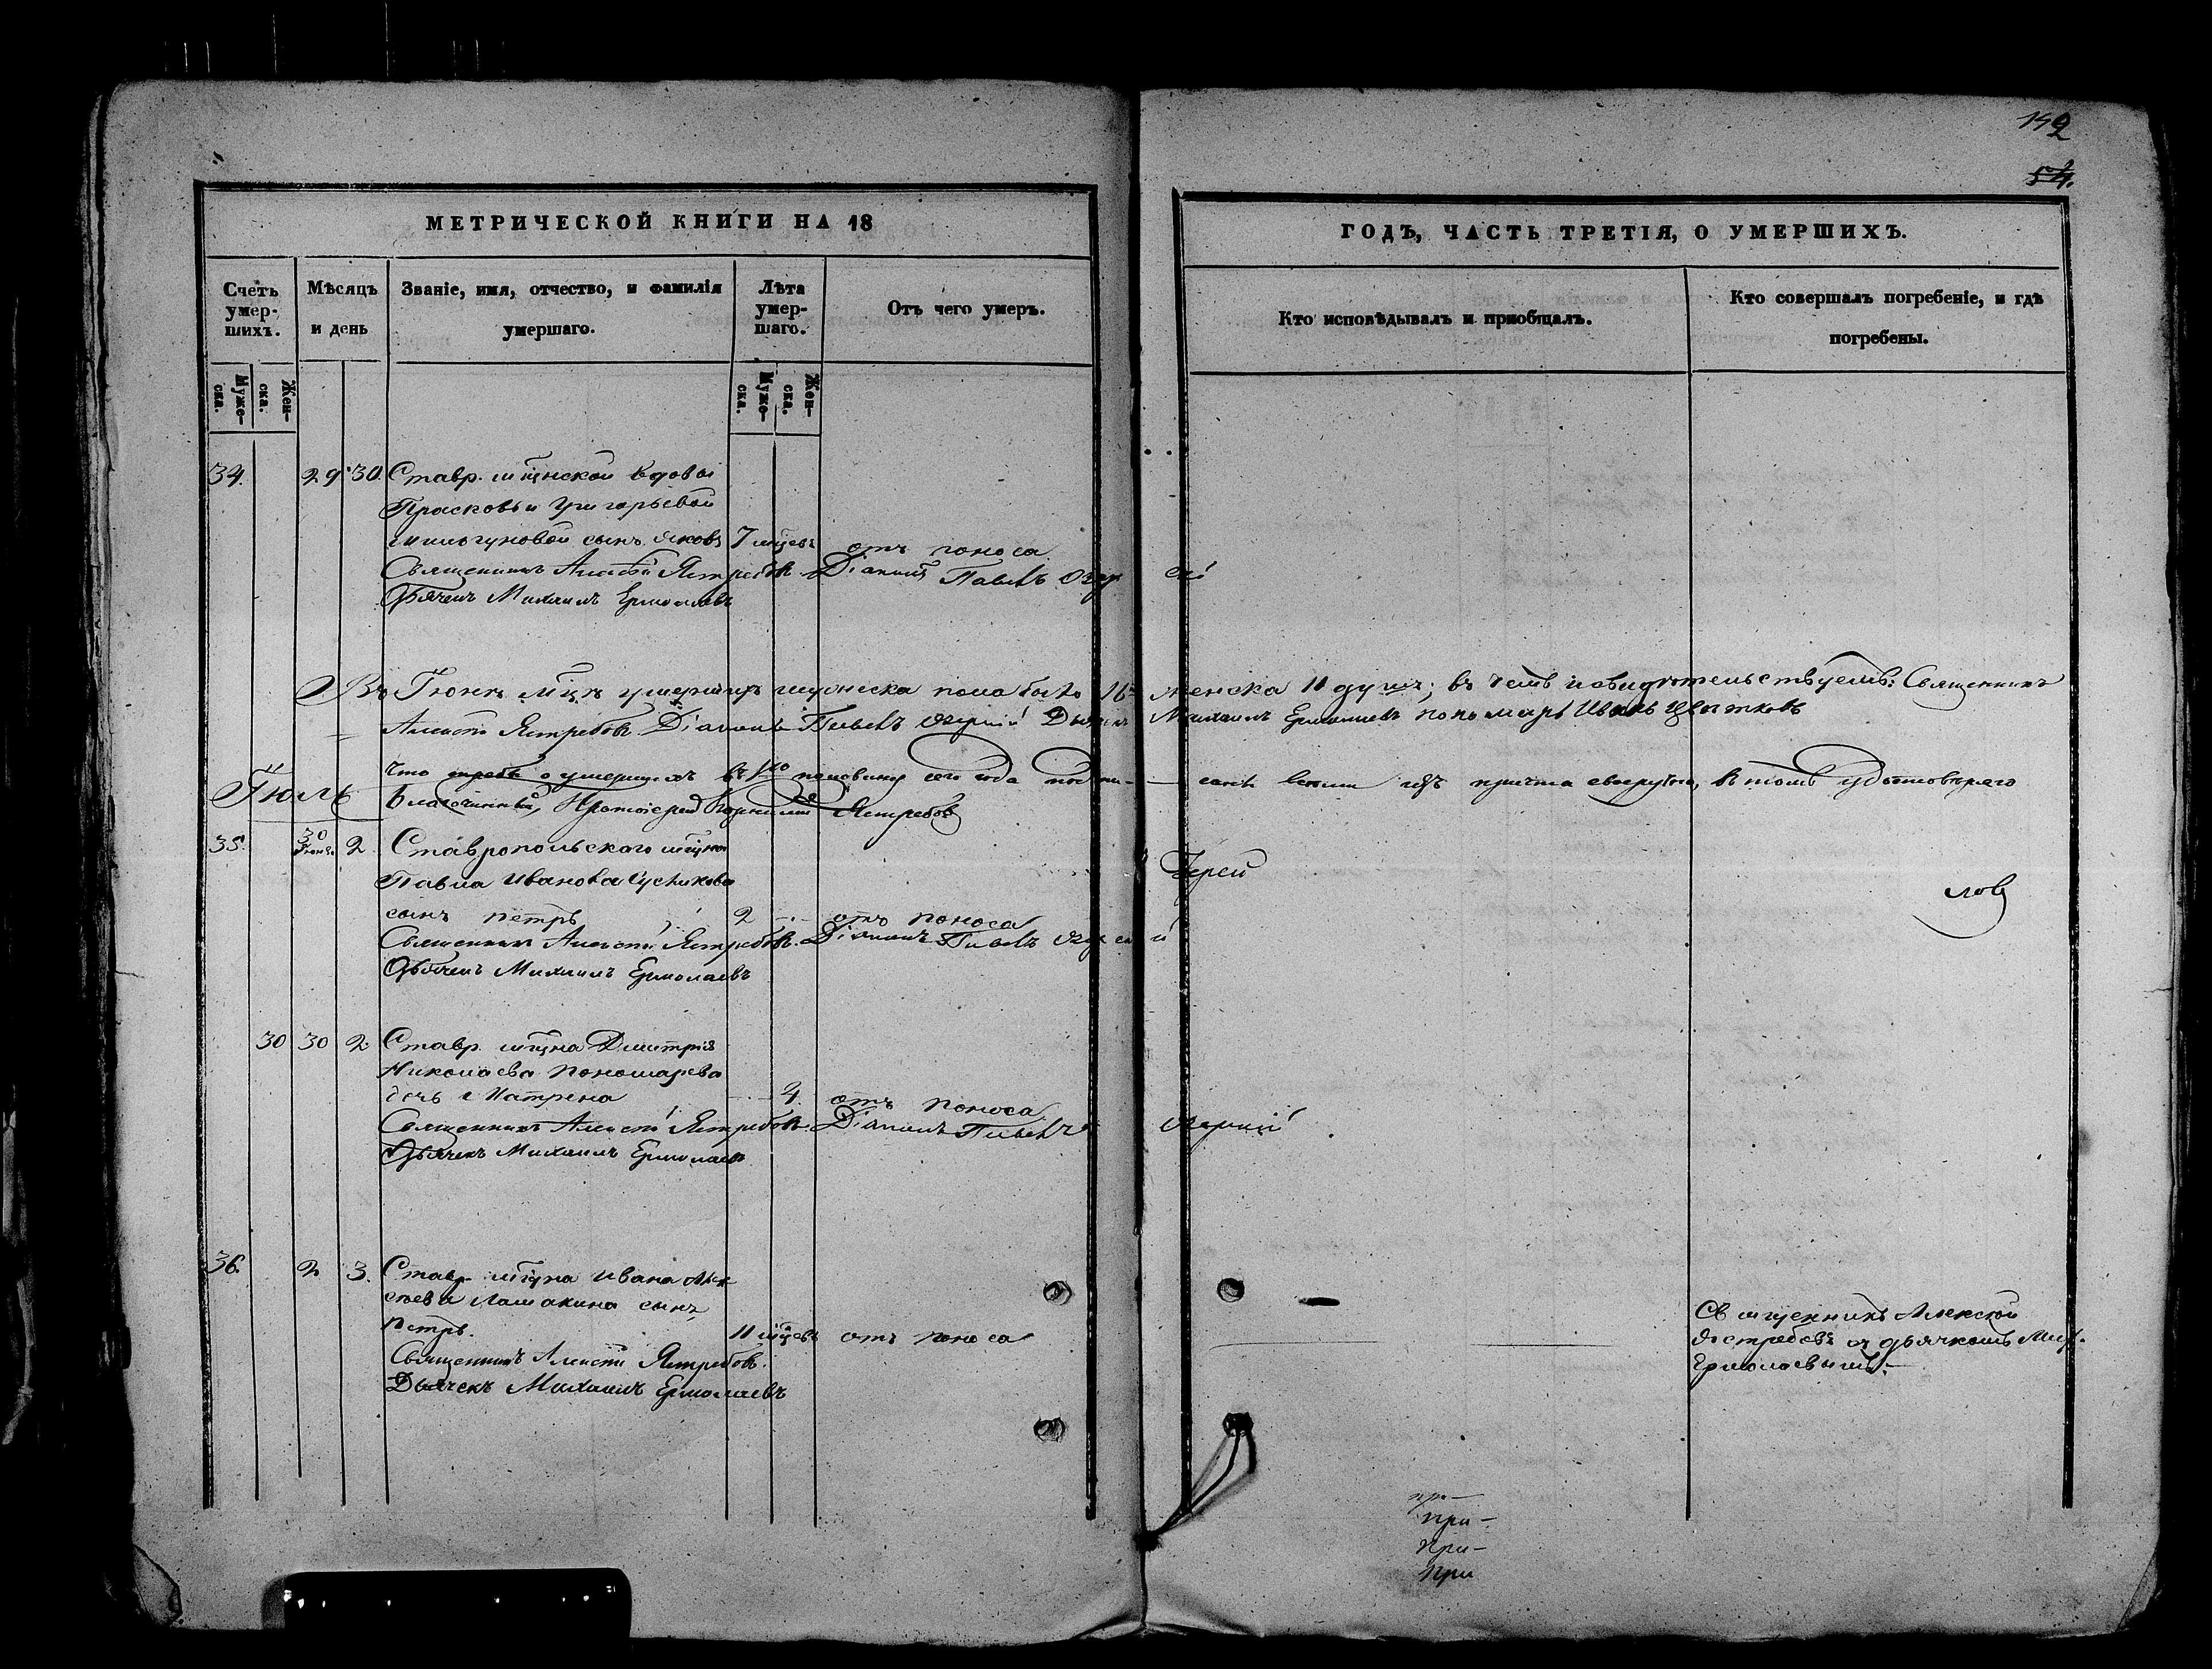 142
54.
МЕТРИЧЕСКОЙ КНИГИ НА 18
ГОДЪ, ЧАСТЬ ТРЕТІЯ, О УМЕРШИХЪ.
Счетъ умер-шихъ.
Мѣсяцъ и день
Званіе, имя, отчество, и фамилія умершаго.
Лѣта умер-шаго.
Отъ чего умеръ.
Кто исповѣдывалъ и пріобщалъ.
Кто совершалъ погребеніе, и гдѣ погребены.
Муже-ска.
Жен-ска.
Муже-ска.
Жен-ска.
34. 29 30. Ставр. мѣщнской вдовы
Прасковьи Григорьевой
сынъ Яковъ 7 мѣцевъ отъ поноса
Священникъ Алексѣй Ястребовъ. Діаконъ Павелъ
Дьячекъ Михаилъ Ермолаевъ
Въ Іюнѣ мцѣ умершихъ мужеска пола было 16 женска 11 душъ; въ чемъ и свидѣтельствуемъ: Священникъ
Алексѣй Ястребовъ Діаконъ Павелъ Дьячекъ Михаилъ Ермолаевъ пономарь Иванъ Цвѣтковъ
Что о умершихъ въ 1ю половину сего года
Благочинный, Протоіерей Ястребовъ
Іюль
Іерей
ловъ
35. 30 Іюня 2 Ставропольскаго мѣщна
Павла Иванова
сынъ Петръ 2 отъ поноса
Священникъ Алексѣй Ястребовъ. Діаконъ Павелъ
Дьячекъ Михаилъ Ермолаевъ
30 30 2 Ставр. мѣщна Дмитрія
Николаева Пономарева
дочь Матрена 4. отъ поноса
Священникъ Алексѣй Ястребовъ. Діаконъ Павелъ
Дьячекъ Михаилъ Ермолаевъ
36. 2 3. Ставр. мѣщна Ивана Алек
сѣева Ломакина сынъ
Петръ. 11 мѣцевъ отъ поноса
Священникъ Алексѣй Ястребовъ.
Дьячекъ Михаилъ Ермолаевъ
Священникъ Алексѣй
Ястребовъ съ дьячкомъ Мих.
Ермолаевымъ.
при-
при-
при-
при